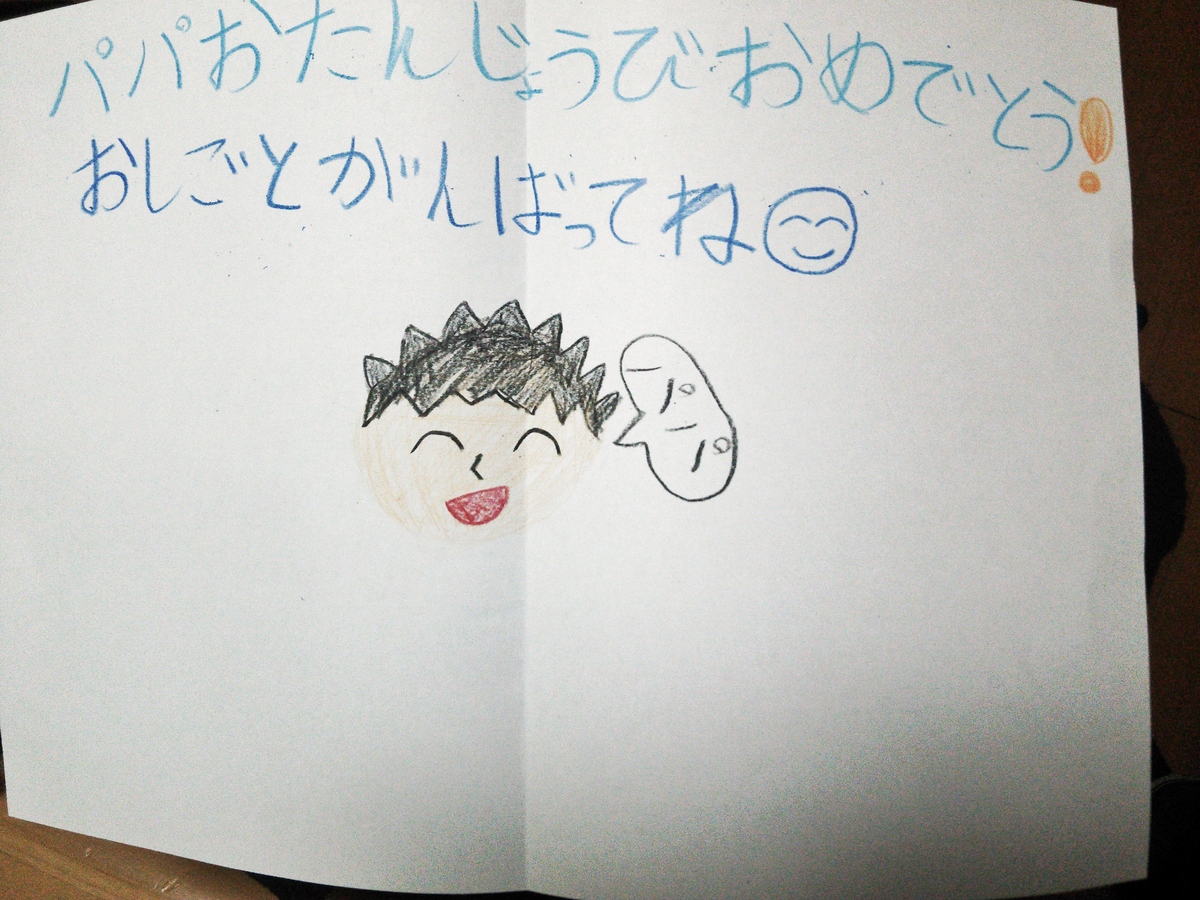 パパおたんじょうびおめでとう!
おしごとがんばってね
パパ